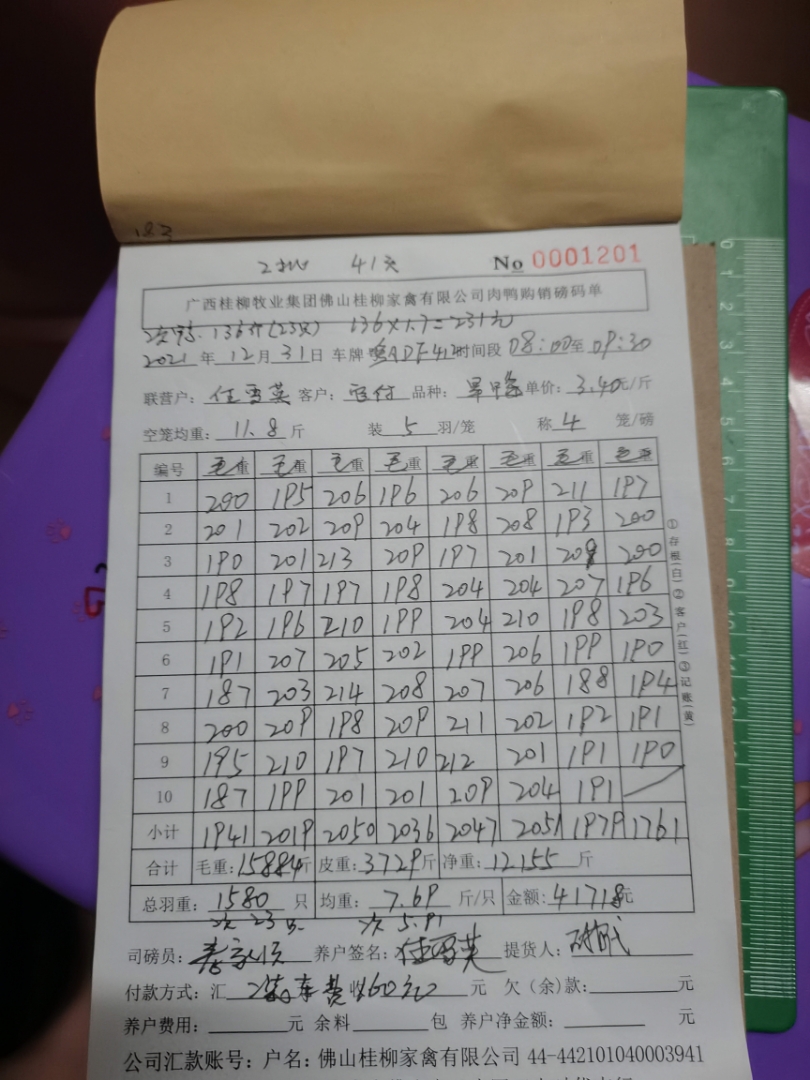 183
41天 No 0001201
广西桂柳牧业集团佛山桂柳家禽有限公司肉鸭购销磅码单
次鸭. 136斤(23只) 136×1.7=231元
2021 年 12 月 31 日 车牌 粤ADF412 时间段 08:00 至 09:30
联营户: 任雪英 客户: 品种: 单价: 3.40 元/斤
空笼均重: 11.8 斤 装 5 羽/笼 称 4 笼/磅
编号 毛重 毛重 毛重 毛重 毛重 毛重 毛重 毛重
1 200 195 206 196 206 209 211 197
2 201 202 209 204 198 208 193 200
3 190 201 213 209 197 201 208 200
4 198 197 197 198 204 204 207 196
5 192 196 210 199 204 210 198 203
6 191 207 205 202 199 206 199 190
7 187 203 214 208 207 206 188 194
8 200 209 198 209 211 202 192 191
9 195 210 197 210 212 201 191 190
10 187 199 201 201 209 204 191
小计 1941 2019 2050 2036 2047 2051 1979 1761
合计 毛重: 15884 斤 皮重: 3729 斤 净重: 12155 斤
总羽重: 1580 只 均重: 7.69 斤/只 金额: 41718 元
次 23只 次 5.91
司磅员: 养户签名: 任雪英 提货人:
付款方式: 汇 装车费收60元 元 欠(余)款: 元
养户费用: 元 余料 包 养户净金额: 元
公司汇款账号: 户名: 佛山桂柳家禽有限公司 44-442101040003941
①存根(白)②客户(红)③记账(黄)